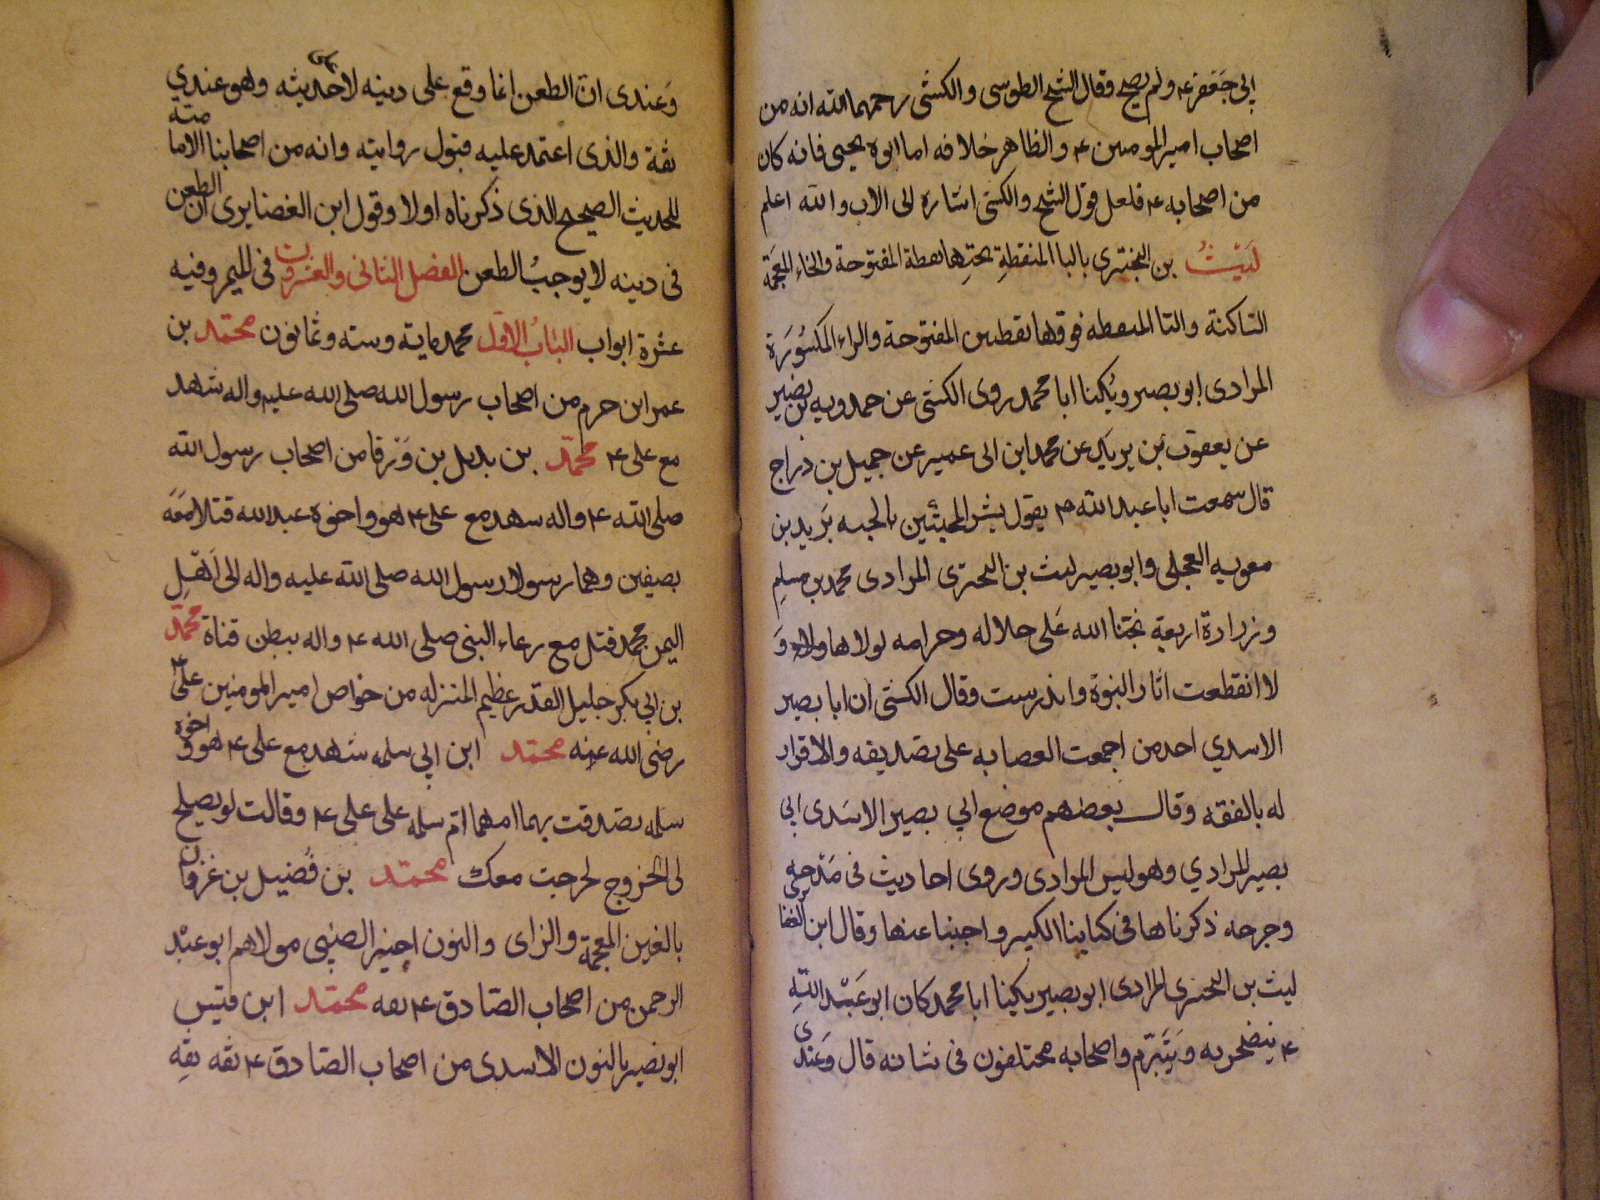 ابي جعفر ع ولم يصح وقال الشيخ الطوسى والكشى رحمهما الله انه من
اصحاب امير المومنين ع والظاهر خلافه اما ابوه يحيى فانه كان
من اصحابه ع فلعل قول الشيخ والكشى اشارة الى الاب والله اعلم
ليث بن البخترى بالبا المنقطة تحتها نقطة المفتوحة والخاء المعجمة
الساكنة والتا المنقطه فوقها نقطين المفتوحة والراء المكسورة
المرادى ابو بصير ويكنا ابا محمد روى الكشى عن حمدويه بن نصير
عن يعقوب بن يزيد عن محمد ابن ابى عمير عن جميل بن دراج
قال سمعت ابا عبد الله ع يقول بشر المخبتين بالجنه بريد بن
معويه العجلى وابو بصير ليث بن البخترى المرادى محمد بن مسلم
وزرارة اربعة نجبا الله على حلاله وحرامه لولا هاولاء
لا انقطعت اثار النبوة واندرست وقال الكشى ان ابا بصير
الاسدي احد من اجمعت العصابه على تصديقه والاقرار
له بالفقه وقال بعضهم موضع ابي بصير الاسدى ابى
بصير المرادي وهو ليس المرادى وروى احاديث فى مدحه
وجرحه ذكرناها فى كتابنا الكبير واجبنا عنها وقال ابن الغضا
ليث بن البخترى المرادى ابو بصير يكنا ابا محمد كان ابو عبد الله
ع يتضجر به ويتبرم واصحابه مختلفون فى شانه قال وعندى
وعندى ان الطعن انما وقع على دينه لا على حديثه وهو عندي
ثقة والذى اعتمد عليه قبول روايته وانه من اصحابنا الامامية
للحديث الصحيح الذى ذكرناه اولا وقول ابن الغضايرى ان الطعن
فى دينه لا يوجب الطعن الفصل الثانى والعشرون فى الميم وفيه
عشرة ابواب الباب الاول محمد ماية وسته وثمانون محمد بن
عمر ابن حزم من اصحاب رسول الله صلى الله عليه واله شهد
مع على ع محمد بن بديل بن ورقا من اصحاب رسول الله
صلى الله ع واله شهد مع على ع هو واخوه عبد الله قتلا معه
بصفين وهما رسولا رسول الله صلى الله عليه واله الى اهل
اليمن محمد قتل مع رعاء النبى صلى الله ع واله ببطن قناة محمد
بن ابي بكر جليل القدر عظيم المنزله من خواص امير المومنين على ع
رضى الله عنه محمد ابن ابي سلمه شهد مع على ع هو واخوه
سلمه تصدقت بهما امهما ام سلمه على على ع وقالت لو يصلح
لى الخروج لخرجت معك محمد بن فضيل بن غزوان
بالغين المعجمة والزاى والنون الضبي مولاهم ابو عبد
الرحمن من اصحاب الصادق ع ثقه محمد ابن قيس
ابو نصير بالنون الاسدى من اصحاب الصادق ع ثقه ثقه